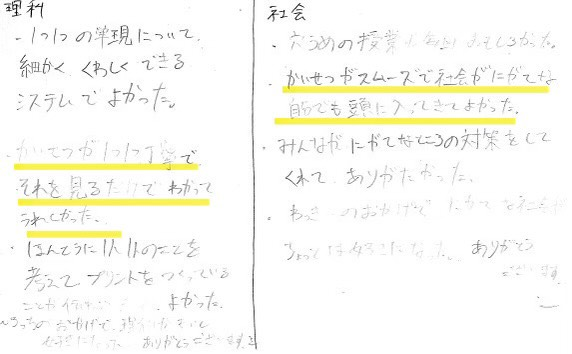 理科
・1つ1つの単現について、
細かく、くわしくできる
システムでよかった。
・かいせつが1つ1つ丁寧で
それを見るだけでわかって
うれしかった。
・ほんとうに1人1人のことを
考えてプリントをつくっている
ことが よかった。
のおかげで、
ありがとうございます
社会
の授業 おもしろかった。
・かいせつがスムーズで社会がにがてな
自分でも頭に入ってきてよかった。
・みんながにがてなところの対策をして
くれて、ありがたかった。
のおかげで にがてな社会が
ちょっと になった。 ありがとう
ございます。